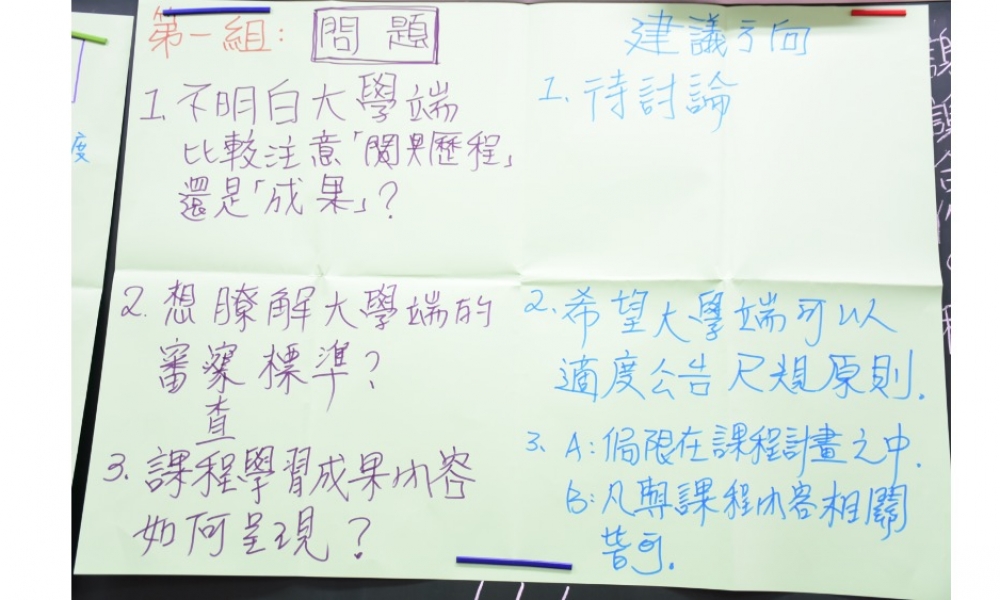 第一組: 問題
1. 不明白大學端
比較注意「閱與歷程」
還是「成果」?
2. 想瞭解大學端的
審察標準?
查
3. 課程學習成果內容
如何呈現?
建議方向
1. 待討論
2. 希望大學端可以
適度公告尺規原則.
3. A: 侷限在課程計畫之中.
B: 凡與課程內容相關
皆可.
度